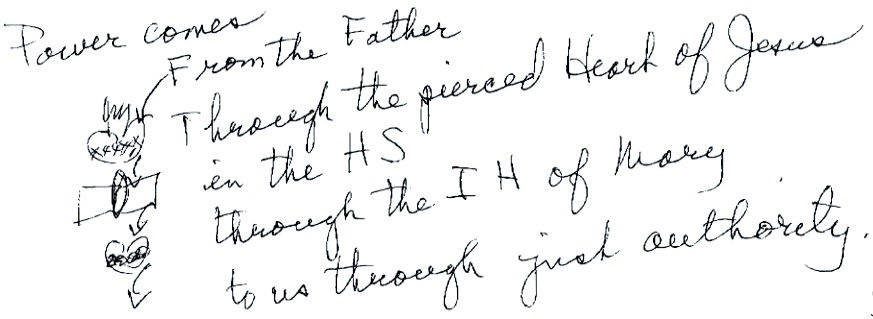 Power comes
From the Father
Through the pierced Heart of Jesus
in the HS
through the I H of Mary
to us through just authority.